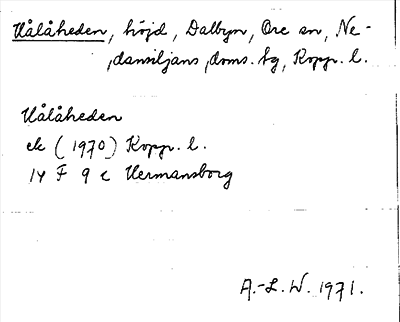 Vålåheden, höjd, Dalbyn, Ore sn, Ne-
dansiljans doms. hg, Kopp. l.
Vålåheden
ek (1970) Kopp. l.
14 F 9 c Hermansborg
A.-L. W. 1971.